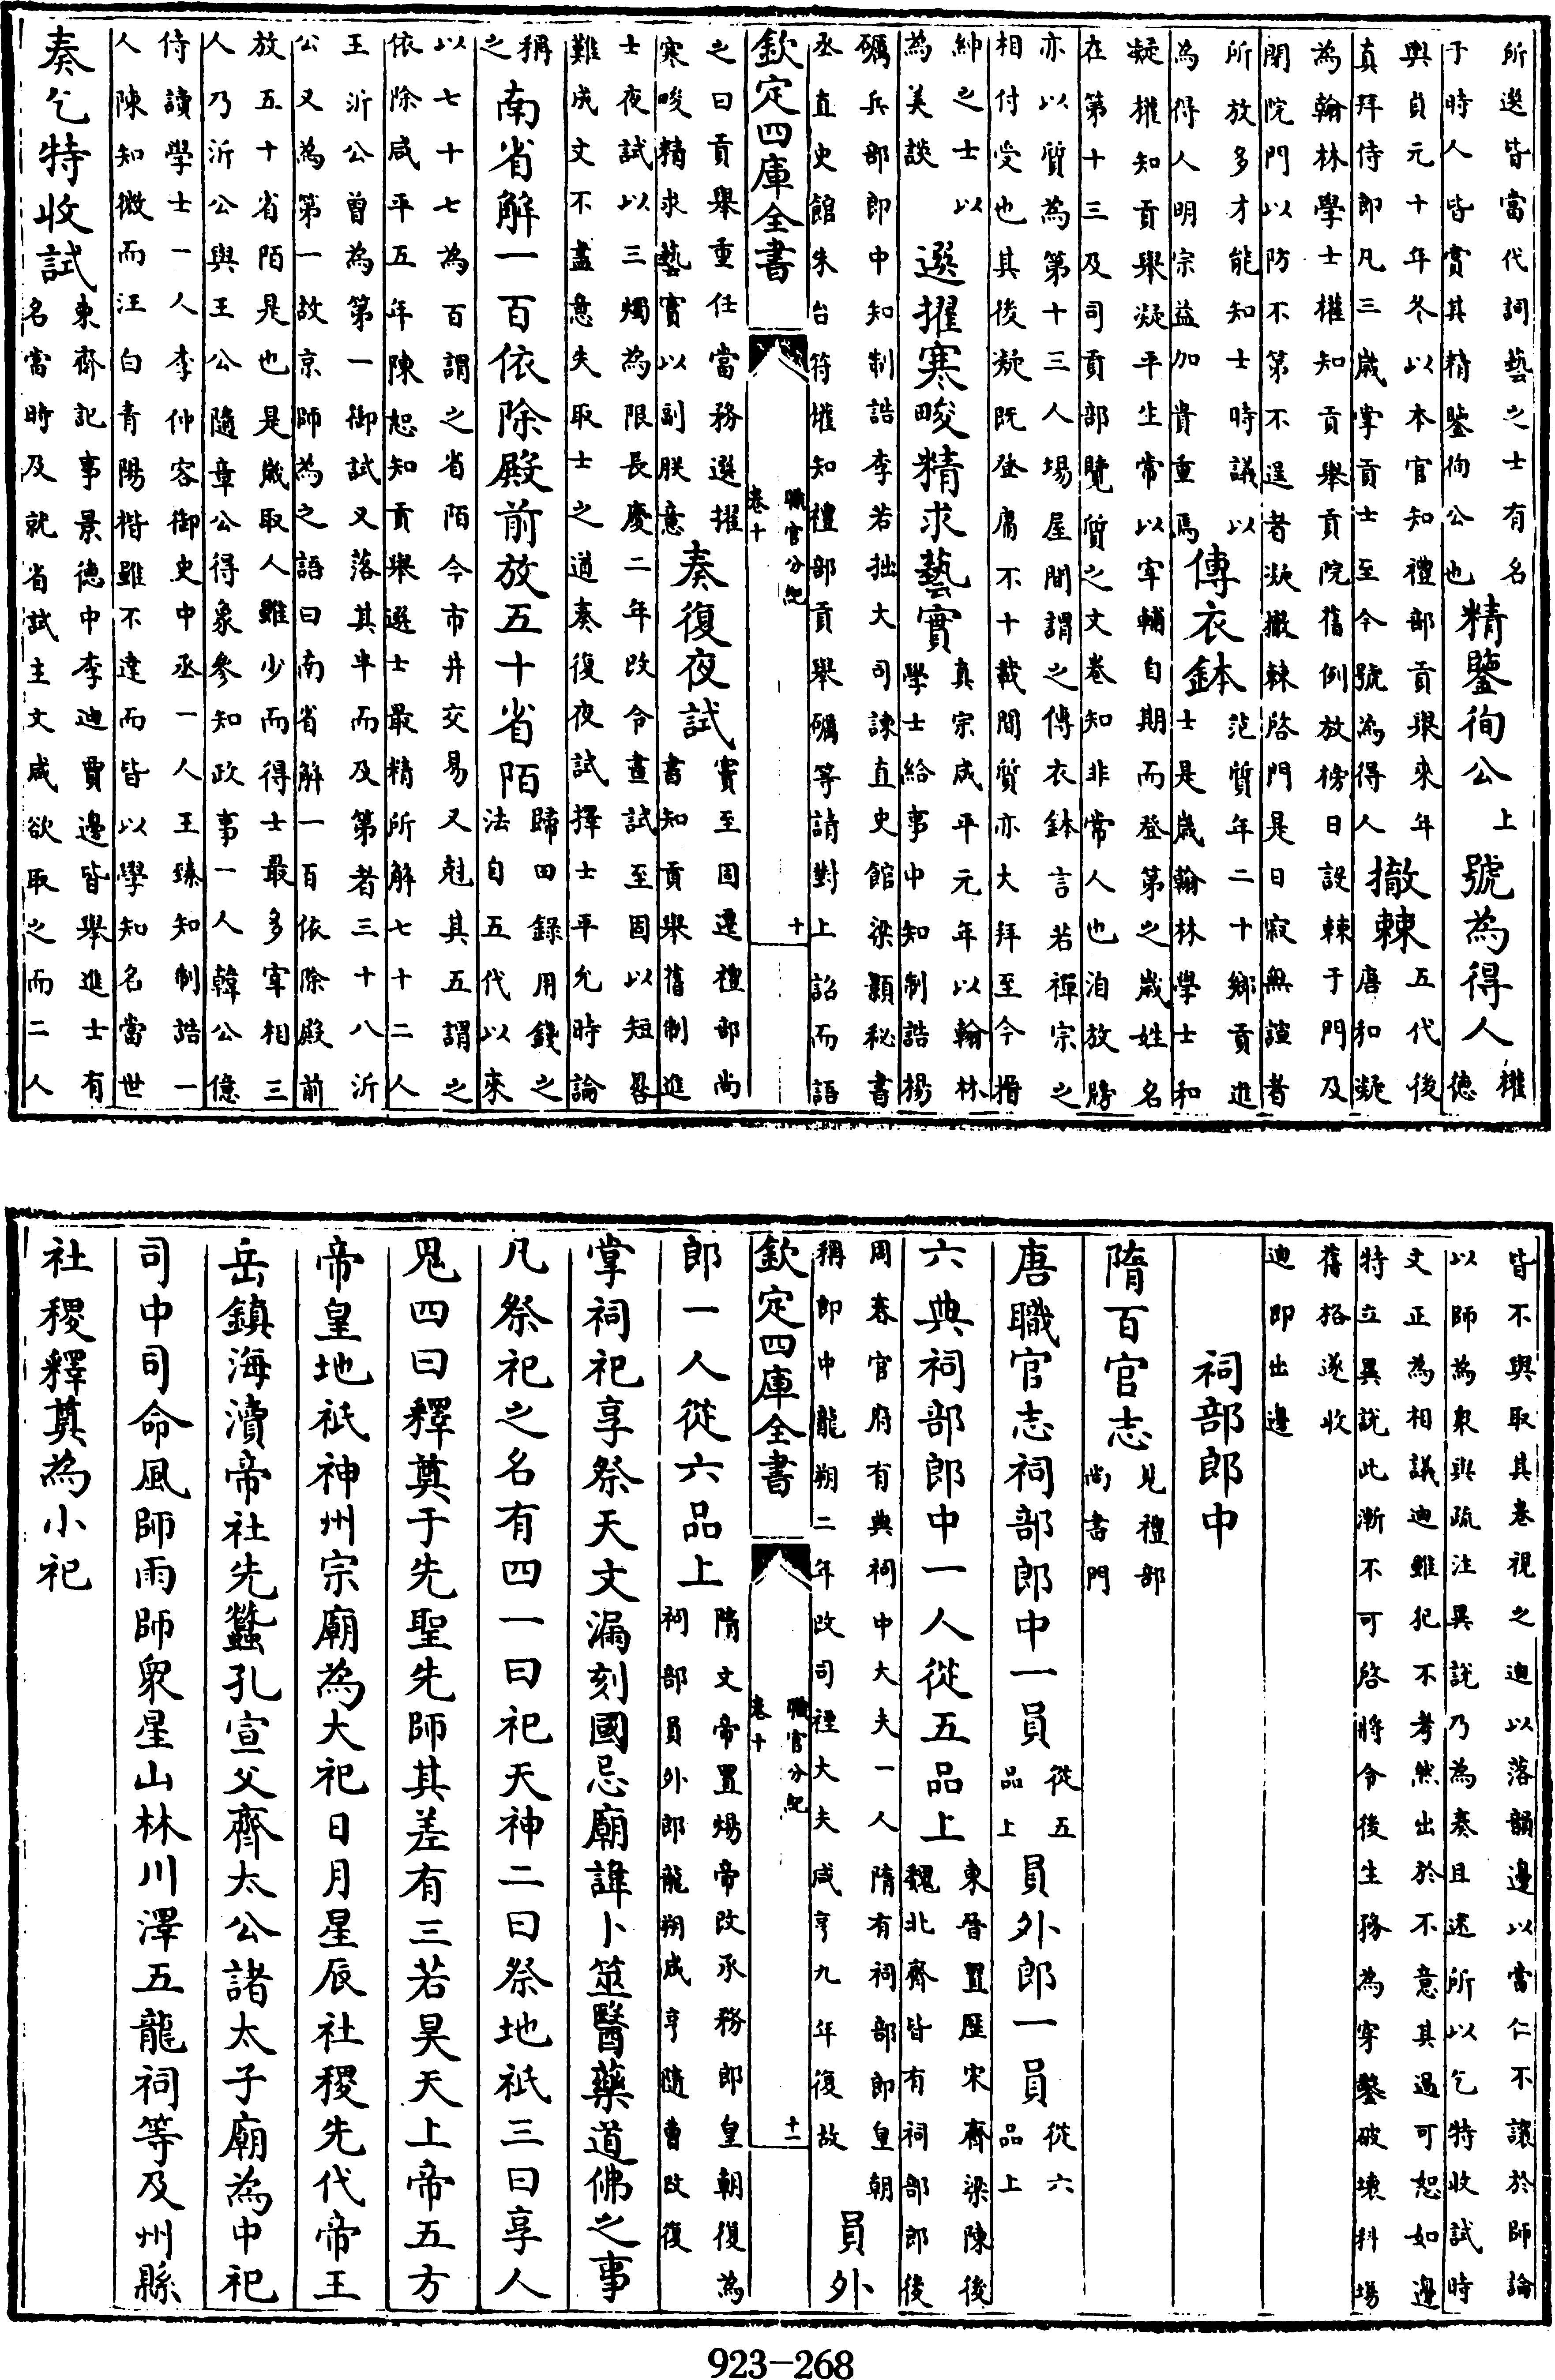 所選皆當代詞藝之士有名
于時人皆賞其精鑒徇公也
精鑒徇公
上
號為得人
權
德
輿貞元十年冬以本官知禮部貢舉來年
真拜侍郎凡三歲掌貢士至今號為得人
撤棘
五代後
唐和凝
為翰林學士權知貢舉貢院舊例放榜日設棘于門及
閉院門以防不第不逞者凝撤棘啓門是日寂無諠者
所放多才能知士時議以
為得人明宗益加貴重焉
傳衣鉢
范質年二十鄉貢進
士是歲翰林學士和
凝權知貢舉凝平生常以宰輔自期而登第之歲姓名
在第十三及司貢部覽質之文卷知非常人也洎放牓
亦以質為第十三人場屋間謂之傳衣鉢言若禪宗之
相付受也其後凝既登庸不十載間質亦大拜至今搢
紳之士以
為美談
選擢寒畯精求藝實
真宗咸平元年以翰林
學士給事中知制誥楊
礪兵部郎中知制誥李若拙大司諫直史館梁顥秘書
丞直史館朱台符權知禮部貢舉礪等請對上詔而語
欽定四庫全書
職官分紀
卷十
十
之曰貢舉重任當務選擢
寒畯精求藝實以副朕意
奏復夜試
竇至固遷禮部尚
書知貢舉舊制進
士夜試以三燭為限長慶二年改令晝試至固以短晷
難成文不盡意失取士之道奏復夜試擇士平允時論
稱
之
南省解一百依除殿前放五十省陌
歸田錄用錢之
法自五代以來
以七十七為百謂之省陌今市井交易又尅其五謂之
依除咸平五年陳恕知貢舉選士最精所解七十二人
王沂公曾為第一御試又落其半而及第者三十八沂
公又為第一故京師為之語曰南省解一百依除殿前
放五十省陌是也是歲取人雖少而得士最多宰相三
人乃沂公與王公隨章公得象參知政事一人韓公億
侍讀學士一人李仲容御史中丞一人王臻知制誥一
人陳知微而汪白青陽楷雖不達而皆以學知名當世
奏乞特收試
東齊記事景德中李迪賈邊皆舉進士有
名當時及就省試主文咸欲取之而二人
皆不與取其卷視之迪以落韻邊以當仁不讓於師論
以師為衆與疏注異説乃為奏且述所以乞特收試時
文正為相議迪雖犯不考然出於不意其過可恕如邊
特立異説此漸不可啓將令後生務為穿鑿破壞科場
舊格遂收
迪即出邊
祠部郎中
隋百官志
見禮部
尚書門
唐職官志祠部郎中一員
從五
品上
員外郎一員
從六
品上
六典祠部郎中一人從五品上
東晉置歷宋齊梁陳後
魏北齊皆有祠部郎後
周春官府有典祠中大夫一人隋有祠部郎皇朝
稱郎中龍朔二年改司禋大夫咸亨九年復故
員外
欽定四庫全書
職官分紀
卷十
十一
郎一人從六品上
隋文帝置煬帝改承務郎皇朝復為
祠部員外郎龍朔咸亨隨曹改復
掌祠祀享祭天文漏刻國忌廟諱卜筮醫藥道佛之事
凡祭祀之名有四一曰祀天神二曰祭地祇三曰享人
鬼四曰釋奠于先聖先師其差有三若昊天上帝五方
帝皇地祇神州宗廟為大祀日月星辰社稷先代帝王
岳鎮海瀆帝社先蠶孔宣父齊太公諸太子廟為中祀
司中司命風師雨師衆星山林川澤五龍祠等及州縣
社稷釋奠為小祀
923-268